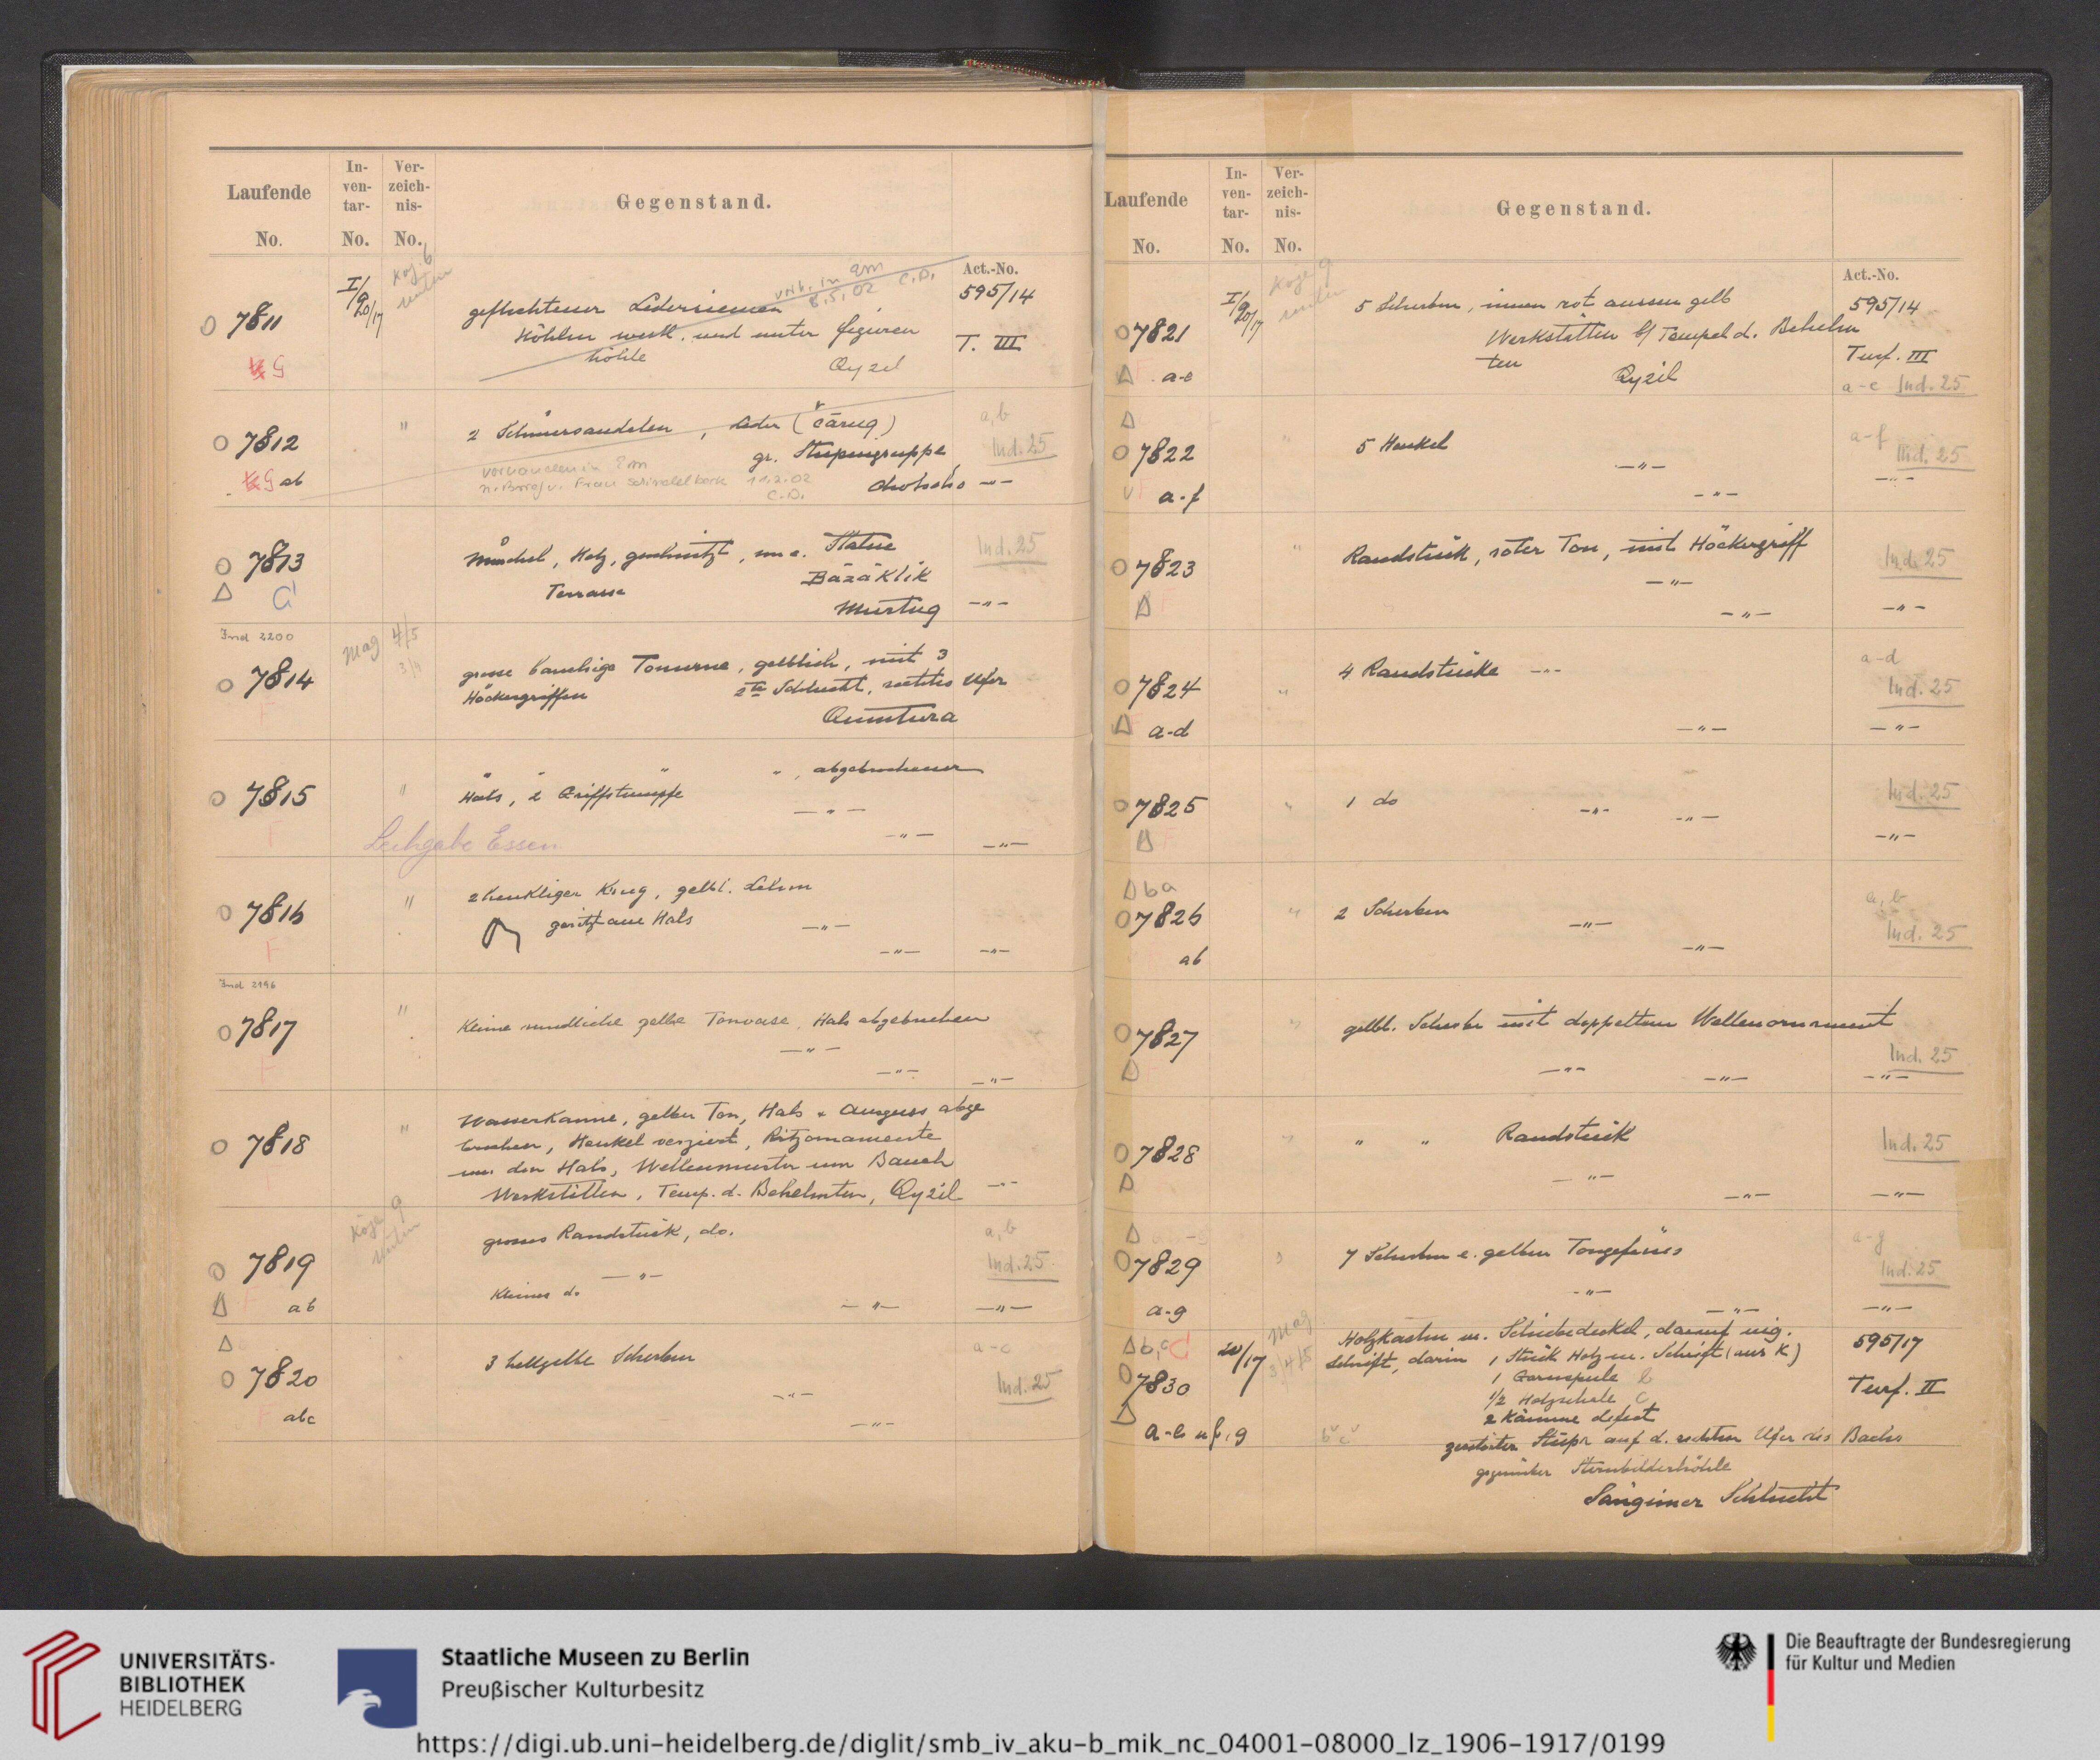 Laufende
No.
In-
ven-
tar-
No.
Ver-
zeich-
nis-
No.
Gegenstand.
Act.-No.
7811
I/20/17
geflochtener Lederriemen
Höhlen westl. und unter Figuren
höhle
Qyzil
595/14
T. III
7812
ab
"
2 Schnürsandalen, Leder (čāruq)
gr. Stupengruppe
vorhanden in
11.2.02
C.D.
a, b
Ind. 25
—"—
7813
Muschel, Holz, geschnitzt, von e. Statue
Terrasse
Bäzäklik
Murtuq
Ind. 25
—"—
Ind 2200
7814
Mag
4/5
grosse bauchige Tonurne, gelblich, mit 3
Höckergriffen
2te Schlucht, rechtes Ufer
Qumtura
7815
"
" " " ", abgebrochener
Hals, 2 Griffstümpfe
—"—
—"—
—"—
Leihgabe Essen
7816
"
2henkliger Krug, gelbl. Lehm
geritzt am Hals
—"—
—"—
—"—
Ind 2196
7817
"
Kleine rundliche gelbe Tonvase, Hals abgebrochen
—"—
—"—
—"—
7818
"
Wasserkanne, gelber Ton, Hals u Ausguss abge
brochen, Henkel verziert, Ritzornamente
um den Hals, Wellenmuster um Bauch
Werkstätten, Temp. d. Behelmten, Qyzil
—"—
7819
ab
grosses Randstück, do.
—"—
Kleines do
—"—
a, b
Ind. 25
—"—
7820
abc
3 hellgelbe Scherben
—"—
—"—
a-c
Ind. 25
Laufende
No.
In-
ven-
tar-
No.
Ver-
zeich-
nis-
No.
Gegenstand.
Act.-No.
7821
a-e
I/20/17
5 Scherben, innen rot aussen gelb
Werkstätten b/ Tempel d. Behelm
ten
Qyzil
595/14
Turf. III
a-e Ind. 25
7822
a-f
"
5 Henkel
—"—
—"—
a-f
Ind. 25
—"—
7823
"
Randstück, roter Ton, mit Höckergriff
—"—
—"—
Ind. 25
—"—
7824
a-d
"
4 Randstücke —"—
—"—
a-d
Ind. 25
—"—
7825
"
1 do
—"—
—"—
Ind. 25
—"—
ba
7826
ab
"
2 Scherben
—"—
—"—
a, b
Ind. 25
7827
"
gelbl. Scherbe mit doppeltem Wellenornament
—"—
—"—
Ind. 25
—"—
7828
"
" " Randstück
—"—
—"—
Ind. 25
—"—
7829
a-g
7 Scherben e. gelben Tongefässes
—"—
—"—
a-g
Ind. 25
—"—
b, c
7830
20/17
Mag
3/4/5
Holzkasten m. Schiebedeckel, darauf uig.
Schrift, darin 1 Stück Holz m. Schrift (aus K)
1 Garnspule b
1/2 Holzschale c
2 Kämme defect
zerstörter Stūpa auf d. rechten Ufer des Baches
gegenüber Sternbilderhöhle
Sängimer Schlucht
595/17
Turf. II
UNIVERSITÄTS-
BIBLIOTHEK
HEIDELBERG
Staatliche Museen zu Berlin
Preußischer Kulturbesitz
Die Beauftragte der Bundesregierung
für Kultur und Medien
https://digi.ub.uni-heidelberg.de/diglit/smb_iv_aku-b_mik_nc_04001-08000_lz_1906-1917/0199